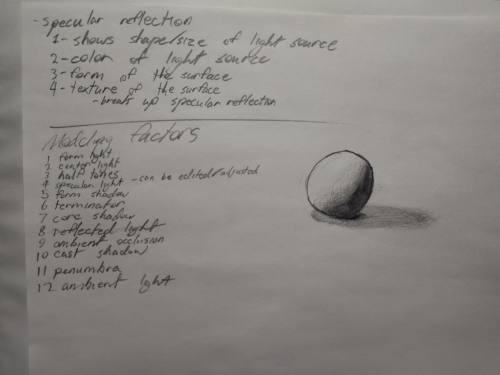 - specular reflection
1 - shows shape/size of light source
2 - color of light source
3 - form of the surface
4 - texture of the surface
- breaks up specular reflection
Modeling factors
1 form light
2 center light
3 half tones
4 specular light - can be edited/adjusted
5 form shadow
6 terminator
7 core shadow
8 reflected light
9 ambient occlusion
10 cast shadow
11 penumbra
12 ambient light